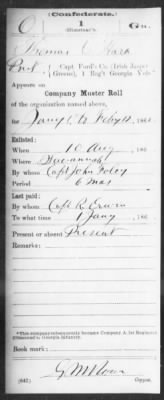 (Confederate.)
O 1 Ga.
(Olmstead's).
Thomas O'Hara
Pvt., Capt. Ford's Co. (Irish Jasper
Greens), 1 Reg't Georgia Vols.
Appears on
Company Muster Roll
of the organization named above,
for Jany 1 to Feby 28, 186
Enlisted:
When 10 Aug, 186
Where Savannah
By whom Capt John Foley
Period 6 mos
Last paid:
By whom Capt R Erwin
To what time 1 Jany, 186
Present or absent Present
Remarks:
*This company subsequently became Company A, 1st Regiment
(Olmstead's) Georgia Infantry.
Book mark:
(642) Copyist.